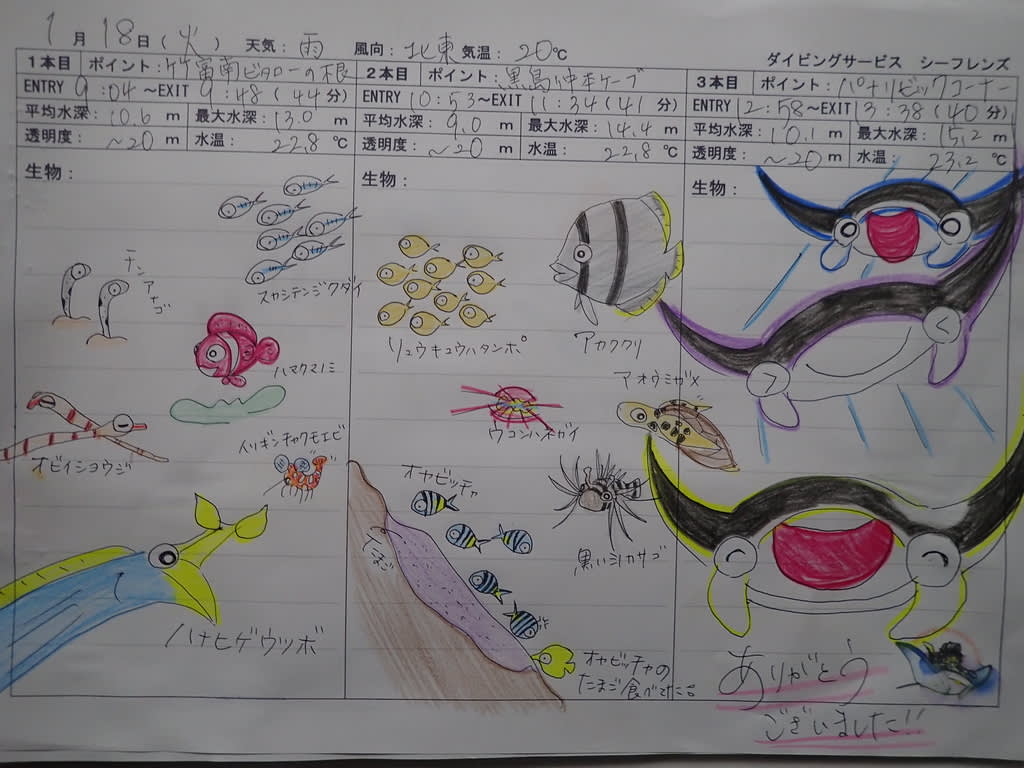 1月18日(火) 天気:雨 風向:北東 気温:20℃
ダイビングサービス シーフレンズ
1本目 ポイント:竹富南ビタローの根
ENTRY 9:04~EXIT 9:48(44分)
平均水深:10.6m 最大水深:13.0m
透明度:~20m 水温:22.8℃
生物:
スカシテンジクダイ
チンアナゴ
ハマクマノミ
イソギンチャクモエビ
オビイショウジ
ハナヒゲウツボ
2本目 ポイント:黒島沖本ケーブ
ENTRY 10:53~EXIT 11:34(41分)
平均水深:9.0m 最大水深:14.4m
透明度:~20m 水温:22.8℃
生物:
リュウキュウハタンポ
アカククリ
アオウミガメ
ウコンハネガイ
オヤビッチャ
黒いミノカサゴ
たまご
オヤビッチャの
たまご食べてた
3本目 ポイント:パナリビックコーナー
ENTRY 12:58~EXIT 13:38(40分)
平均水深:10.1m 最大水深:15.2m
透明度:~20m 水温:23.2℃
生物:
ありがとう
ございました!!